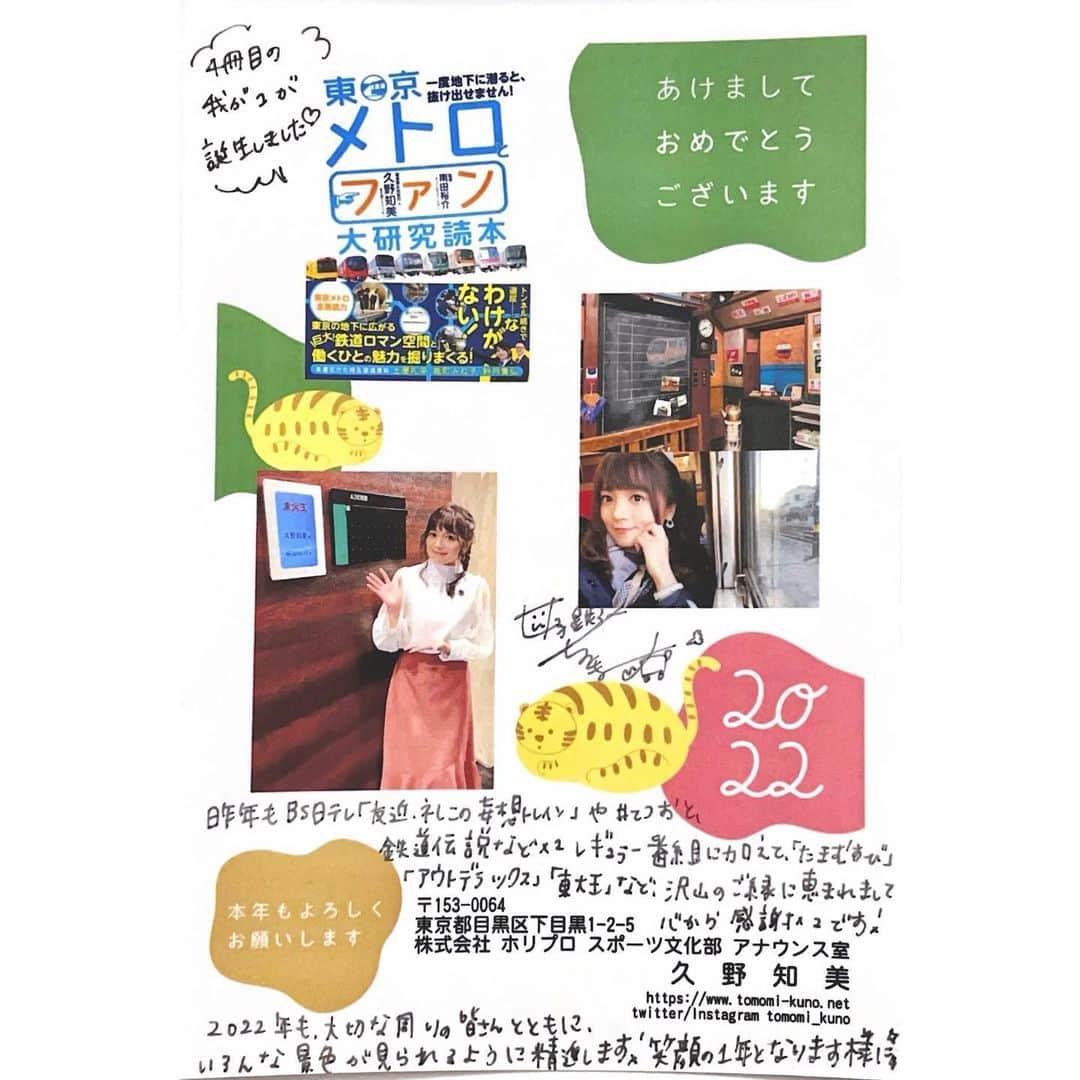 4冊目の
我が子が
誕生しました♡
東京
一度地下に潜ると、
抜け出せません!
メトロと
ファン
久野知美
南田裕介
大研究読本
東京メトロ
全面協力
トンネル続きで
退屈——な
わけが
ない!
東京の地下に広がる
巨大!鉄道ロマン空間と
働くひとの魅力を掘りまくる!
あけまして
おめでとう
ございます
東大王
久野知美
2022
昨年もBS日テレ「友近・礼二の妄想トレイン」や#てつおと、
鉄道伝説など レギュラー番組に加えて、「たまむすび」
「アウトデラックス」「東大王」など、沢山のご縁に恵まれまして
心から感謝 です!
本年もよろしく
お願いします
〒153-0064
東京都目黒区下目黒1-2-5
株式会社 ホリプロ スポーツ文化部 アナウンス室
久野知美
https://www.tomomi-kuno.net
twitter/Instagram tomomi_kuno
2022年も、大切な周りの皆さんとともに、
いろんな景色が見られるように精進します!笑顔の1年となります様に